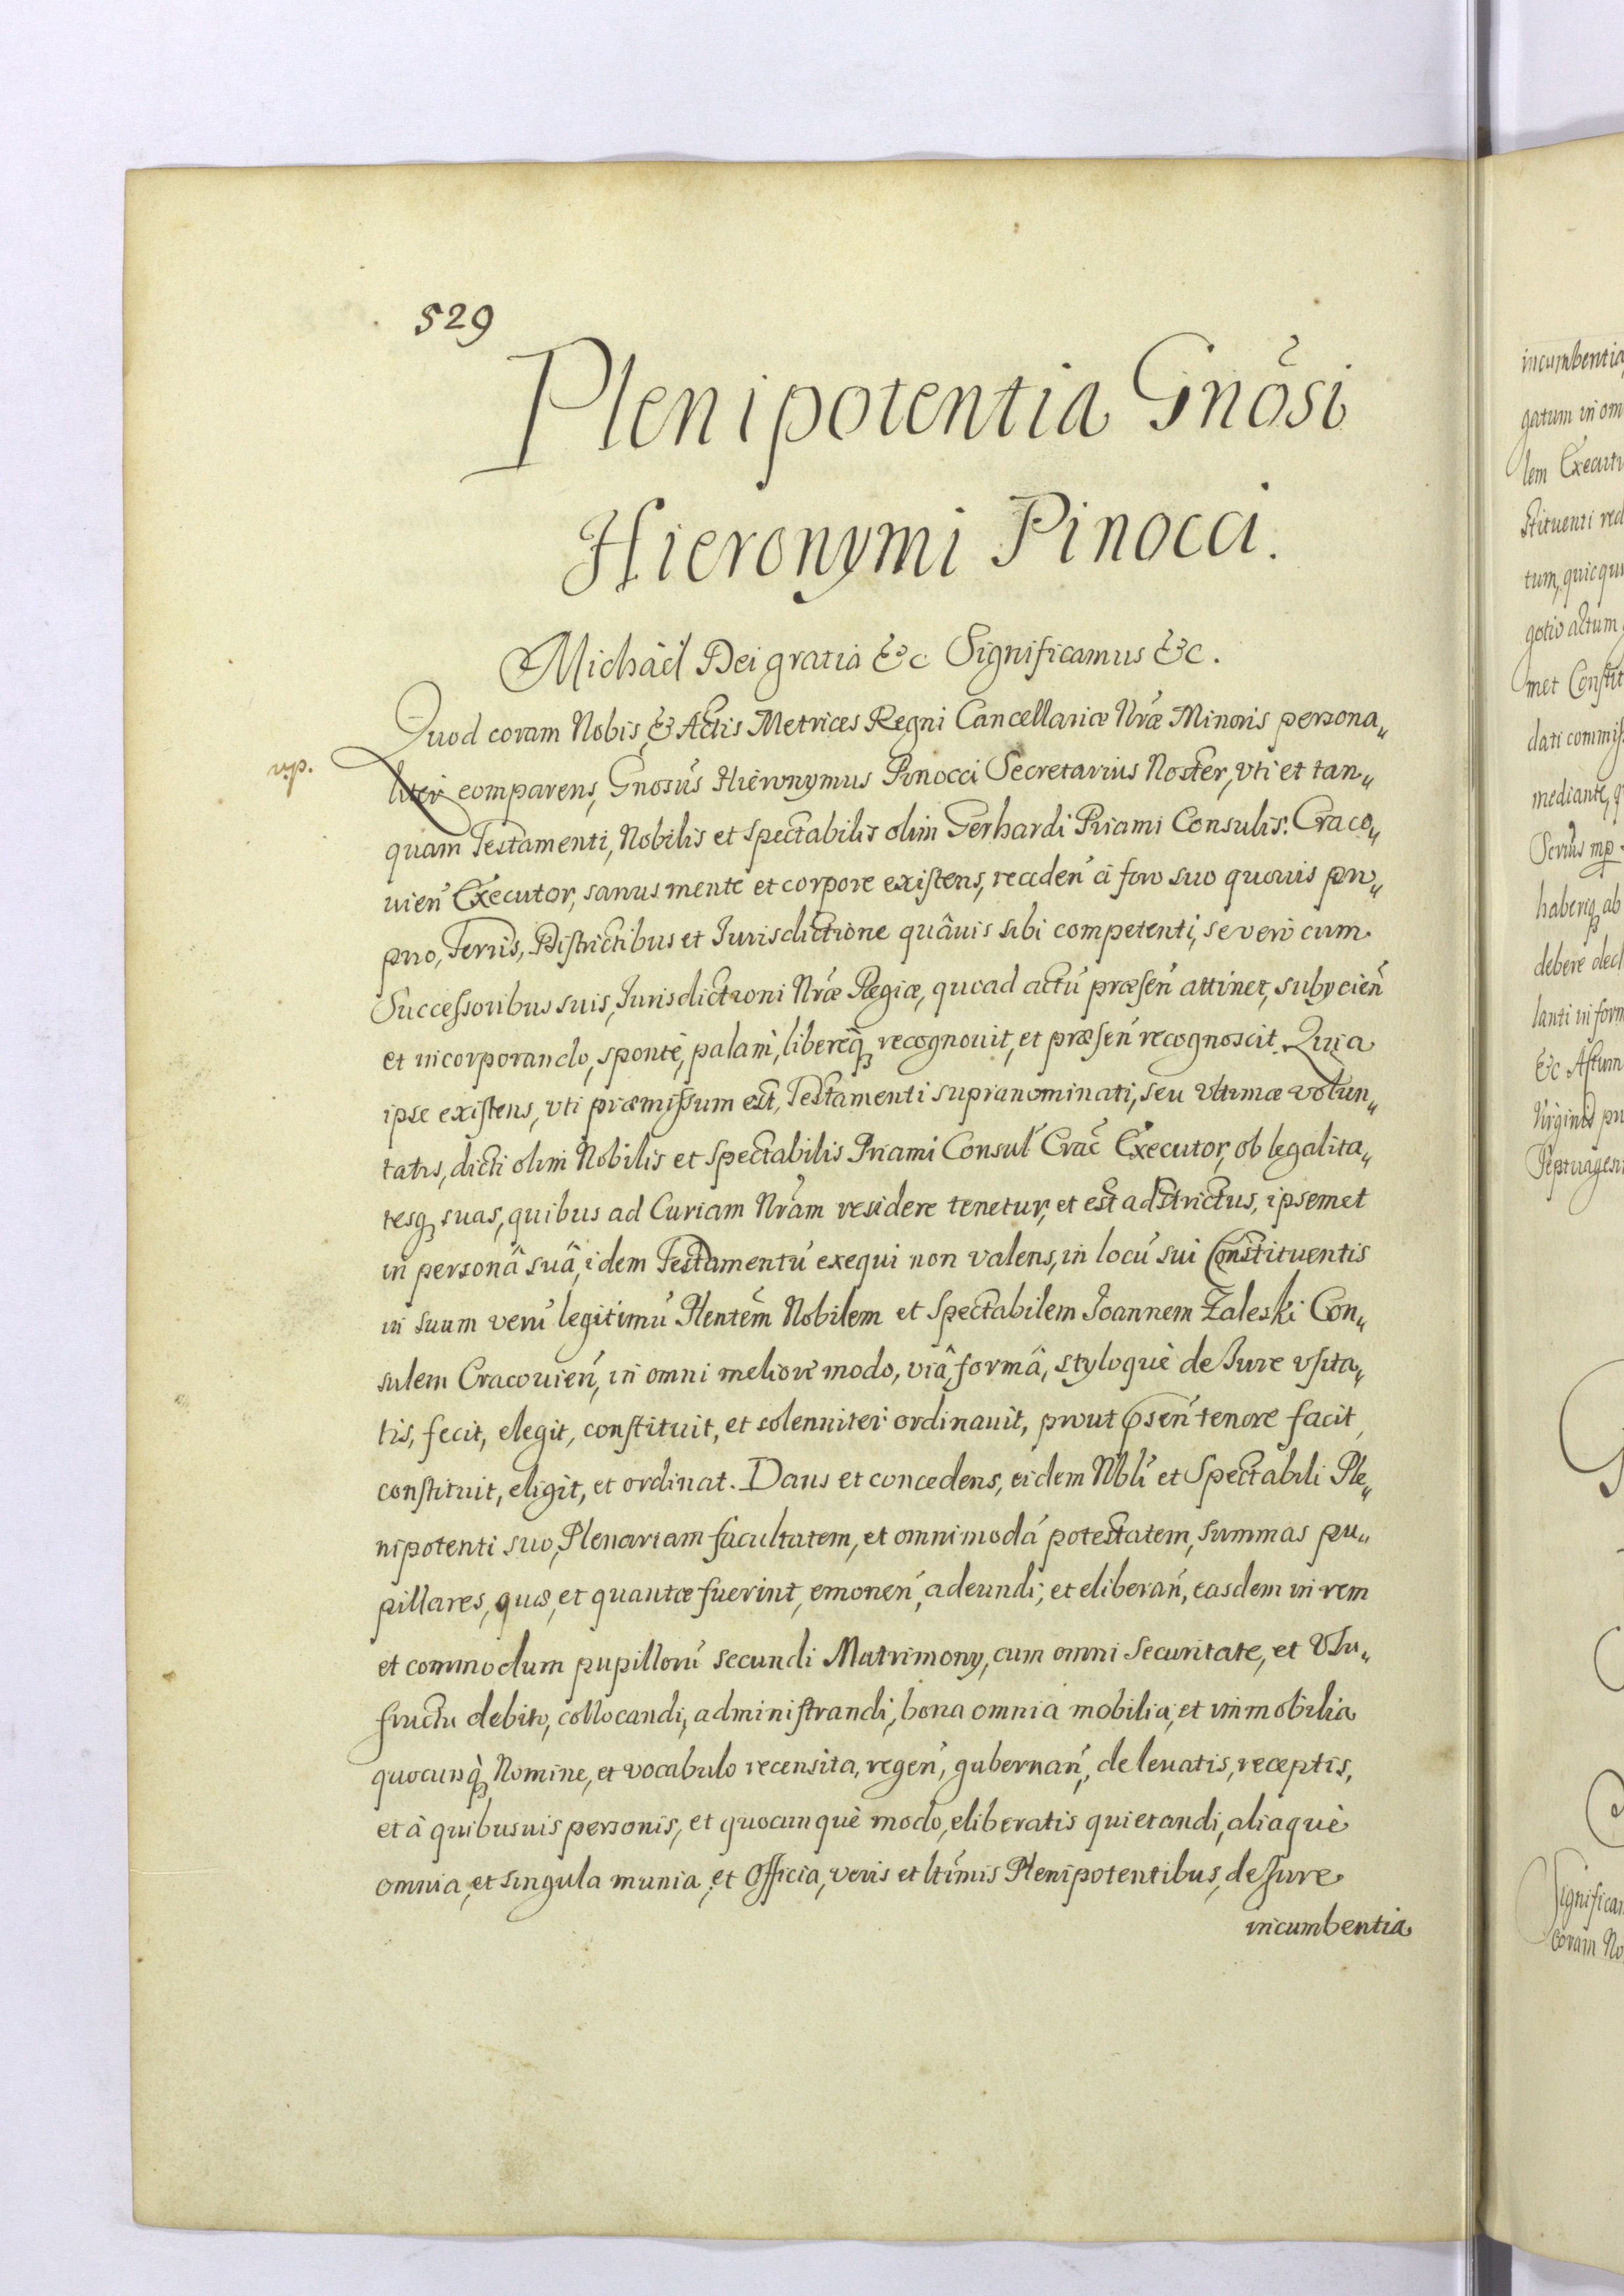 529
Plenipotentia Gnõsi
Hieronymi Pinocci.
Michäel Dei gratia &c Significamus &c.
Quod coram Nobis, & Actis Metrices Regni Cancellariæ Nræ Minoris persona„
liter comparens, Gnosus Hieronymus Pinocci Secretarius Noster, vti et tan„
quam Testamenti, Nobilis et spectabilis olim Gerhardi Priami Consulis Craco„
uien Executor, sanus mente et corpore existens, receden à foro suo quouis pro„
prio, Terris, Districtibus et Jurisdictione quâuis sibi competenti, se vero cum
Successoribus suis, Jurisdictioni Nræ Regiæ, quoad actũ præsen attinet, subycien
et incorporando, sponte, palam, libereq recognouit, et præsen recognoscit. Quia
ipse existens, vti præmissum est, Testamenti supranominati, seu vltimæ volun„
tatis, dicti olim Nobilis et Spectabilis Priami Consul Crac Executor, ob legalita„
tesq suas, quibus ad Curiam Nram residere tenetur, et est adstrictus, ipsemet
in personâ suâ, idem Testamentũ exequi non valens, in locũ sui Constituentis
in suum verũ legitimũ Plentem Nobilem et Spectabilem Joannem Zaleski Con„
sulem Cracouien, in omni meliori modo, viâ, formâ, styloquè de Jure vsita„
tis, fecit, elegit, constituit, et solenniter ordinauit, prout psen tenore facit,
constituit, eligit, et ordinat. Dans et concedens, eidem Nbli et Spectabili Ple„
nipotenti suo, Plenariam facultatem, et omnimodã potestatem, summas pu„
pillares, quæ, et quantæ fuerint, emonen, adeundi, et eliberan, easdem in rem
et commodum pupillorũ secundi Matrimony, cum omni Securitate, et Vsu„
fructu debito, collocandi, administrandi, bona omnia mobilia, et immobilia
quocunq Nomine, et vocabulo recensita, regen, gubernan, de leuatis, receptis,
et à quibusuis personis, et quocunquè modo, eliberatis quietandi, aliaquè
omnia, et singula munia, et Officia, veris et ltimis Plenipotentibus, de Jure
incumbentia